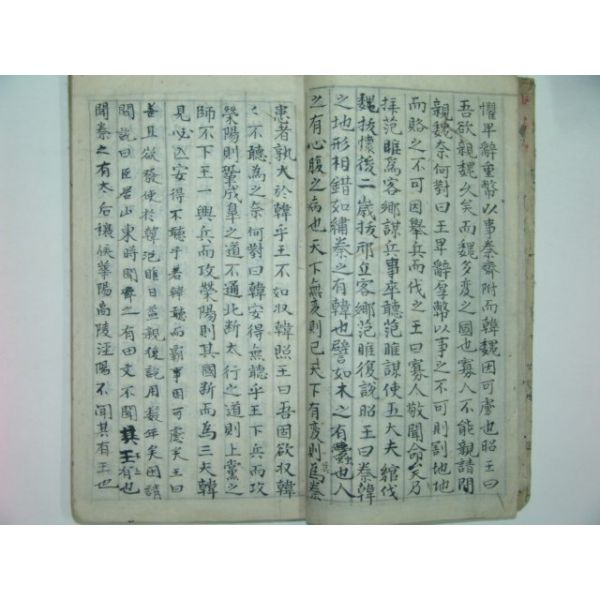 懼早辭重幣以事秦齊附而韓魏因可虜也昭王曰
吾欲親魏久矣而魏多變之國也寡人不能親請問
親魏奈何對曰王早辭厚幣以事之不可則割地
而賂之不可因舉兵而伐之王曰寡人敬聞命矣乃
拜范睢爲客鄉謀兵事卒聽范睢謀使五大夫綰伐
魏拔懷後二歲拔邢丘客鄉范睢復說昭王曰秦韓
之地形相錯如繡秦之有韓也譬如木之有蠹也人
之有心腹之病也天下無變則已天下有變則爲秦
患者孰大於韓乎王不如收韓昭王曰吾固欲收韓
く不聽爲之奈何對曰韓安得無聽乎王下兵而攻
滎陽則鞏成皐之道不通北斷太行之道則上黨之
師不下王一興兵而攻滎陽則其國斷而爲三夫韓
見必亡安得不聽乎若韓聽而霸事因可慮矣王曰
善且欲發使於韓范睢日益親復說用數年矣因請
間說曰臣居山東時聞齊之有田文不聞其王有也
聞秦之有太后穰侯華陽高陵涇陽不聞其有王也